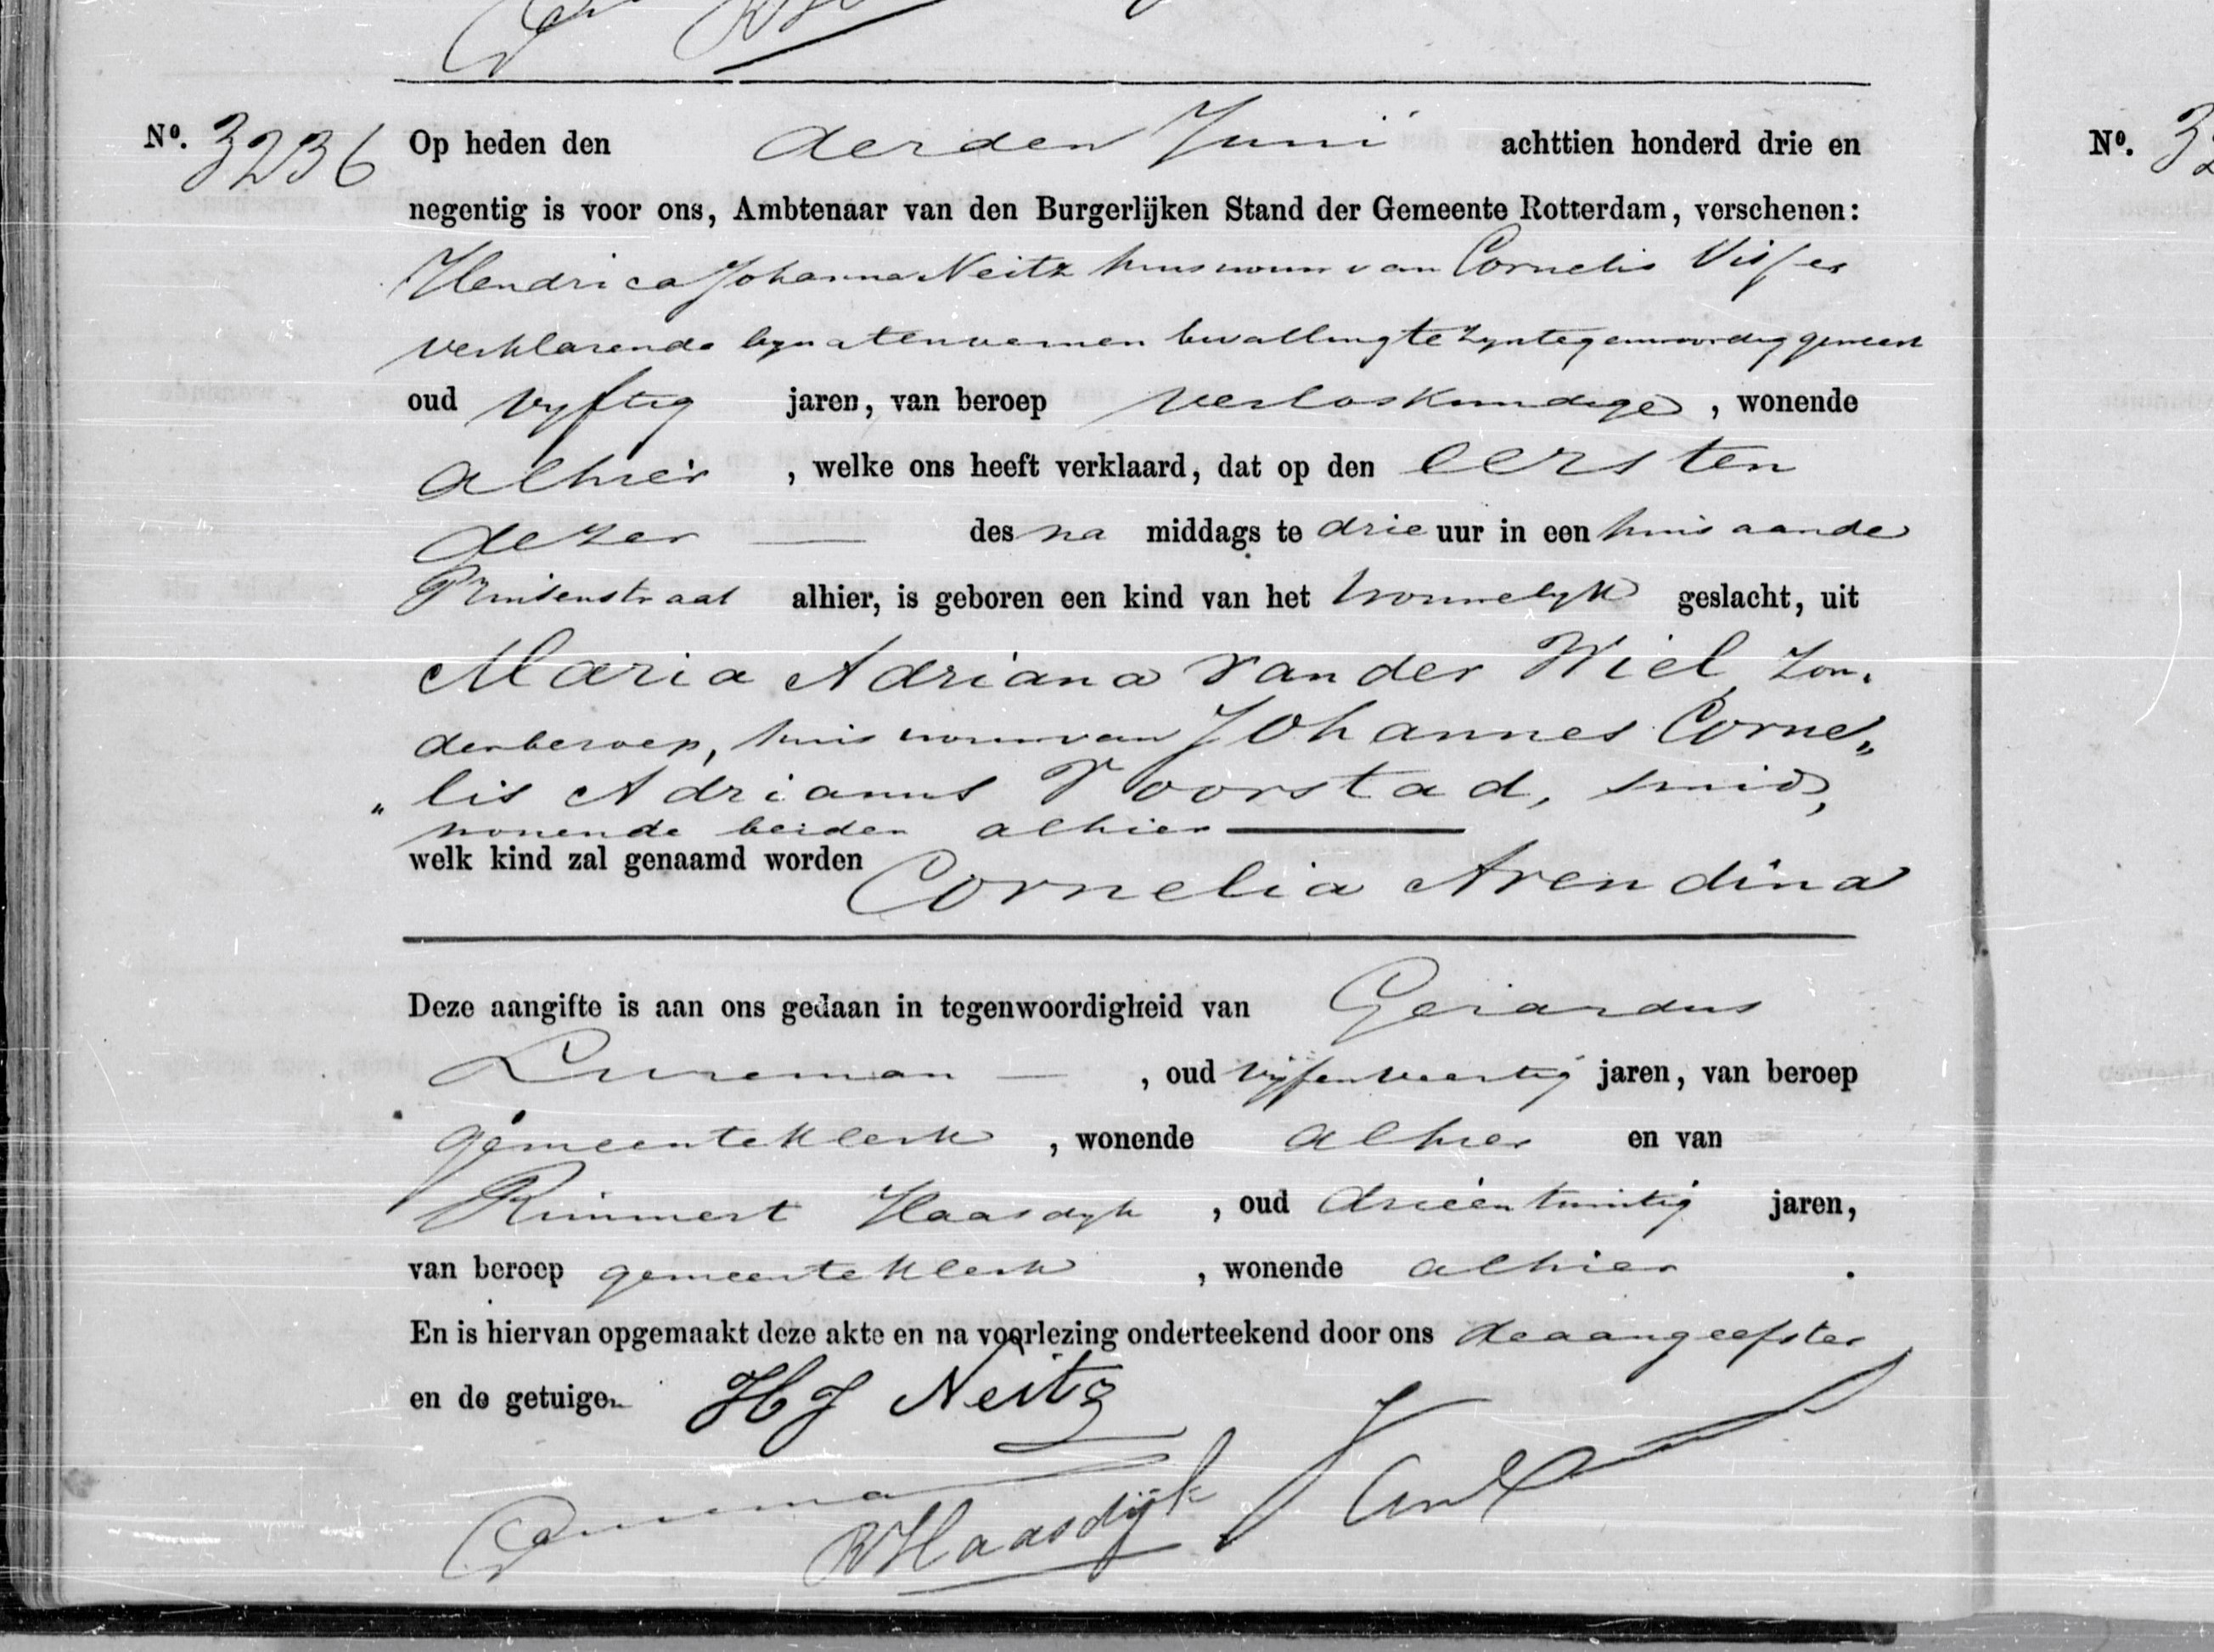 No. 3236 Op heden den derden Junij achttien honderd drie en
negentig is voor ons, Ambtenaar van den Burgerlijken Stand der Gemeente Rotterdam, verschenen:
Hendrica Johanna Neitz huisvrouw van Cornelis Visser
verklarende by na tenoemen bevalling te zyn tegenwoordig geweest
oud vyftig jaren, van beroep verloskundige, wonende
alhier, welke ons heeft verklaard, dat op den eersten
dezer des na middags te drie uur in een huis aande
alhier, is geboren een kind van het vrouwelyk geslacht, uit
Maria Adriana van der Wiel, zon-
der beroep, huisvrouw van Johannes Corne„
„lis Adrianus Voorstad, smid,
wonende beiden alhier
welk kind zal genaamd worden Cornelia Arendina
Deze aangifte is aan ons gedaan in tegenwoordigheid van Gerardus
, oud vijfenveertig jaren, van beroep
gemeenteklerk, wonende alhier en van
Rimmert Haasdyk, oud drieëntwintig jaren,
van beroep gemeenteklerk, wonende alhier.
En is hiervan opgemaakt deze akte en na voorlezing onderteekend door ons de aangeefster
en de getuigen. H J Neitz
RHaasdijk
No. 32